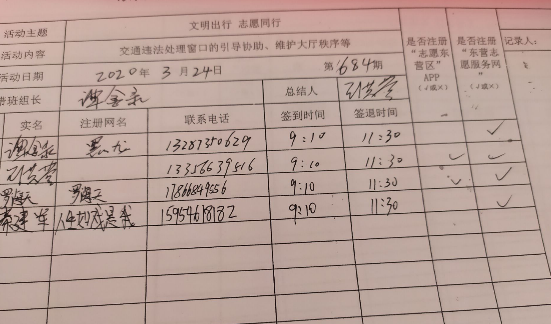 活动主题 文明出行 志愿同行
活动内容 交通违法处理窗口的引导协助、维护大厅秩序等
活动日期 2020年3月24日 第1684期
带班组长 谭金泉 总结人
实名 注册网名 联系电话 签到时间 签退时间 是否注册“志愿东营区”APP（√或×） 是否注册“东营志愿服务网”（√或×） 记录人：
谭金泉 13287350629 9:10 11:30 √
13356639516 9:10 11:30 √ √
罗 17866849556 9:10 11:30 √ √
15954618182 9:10 11:30 √